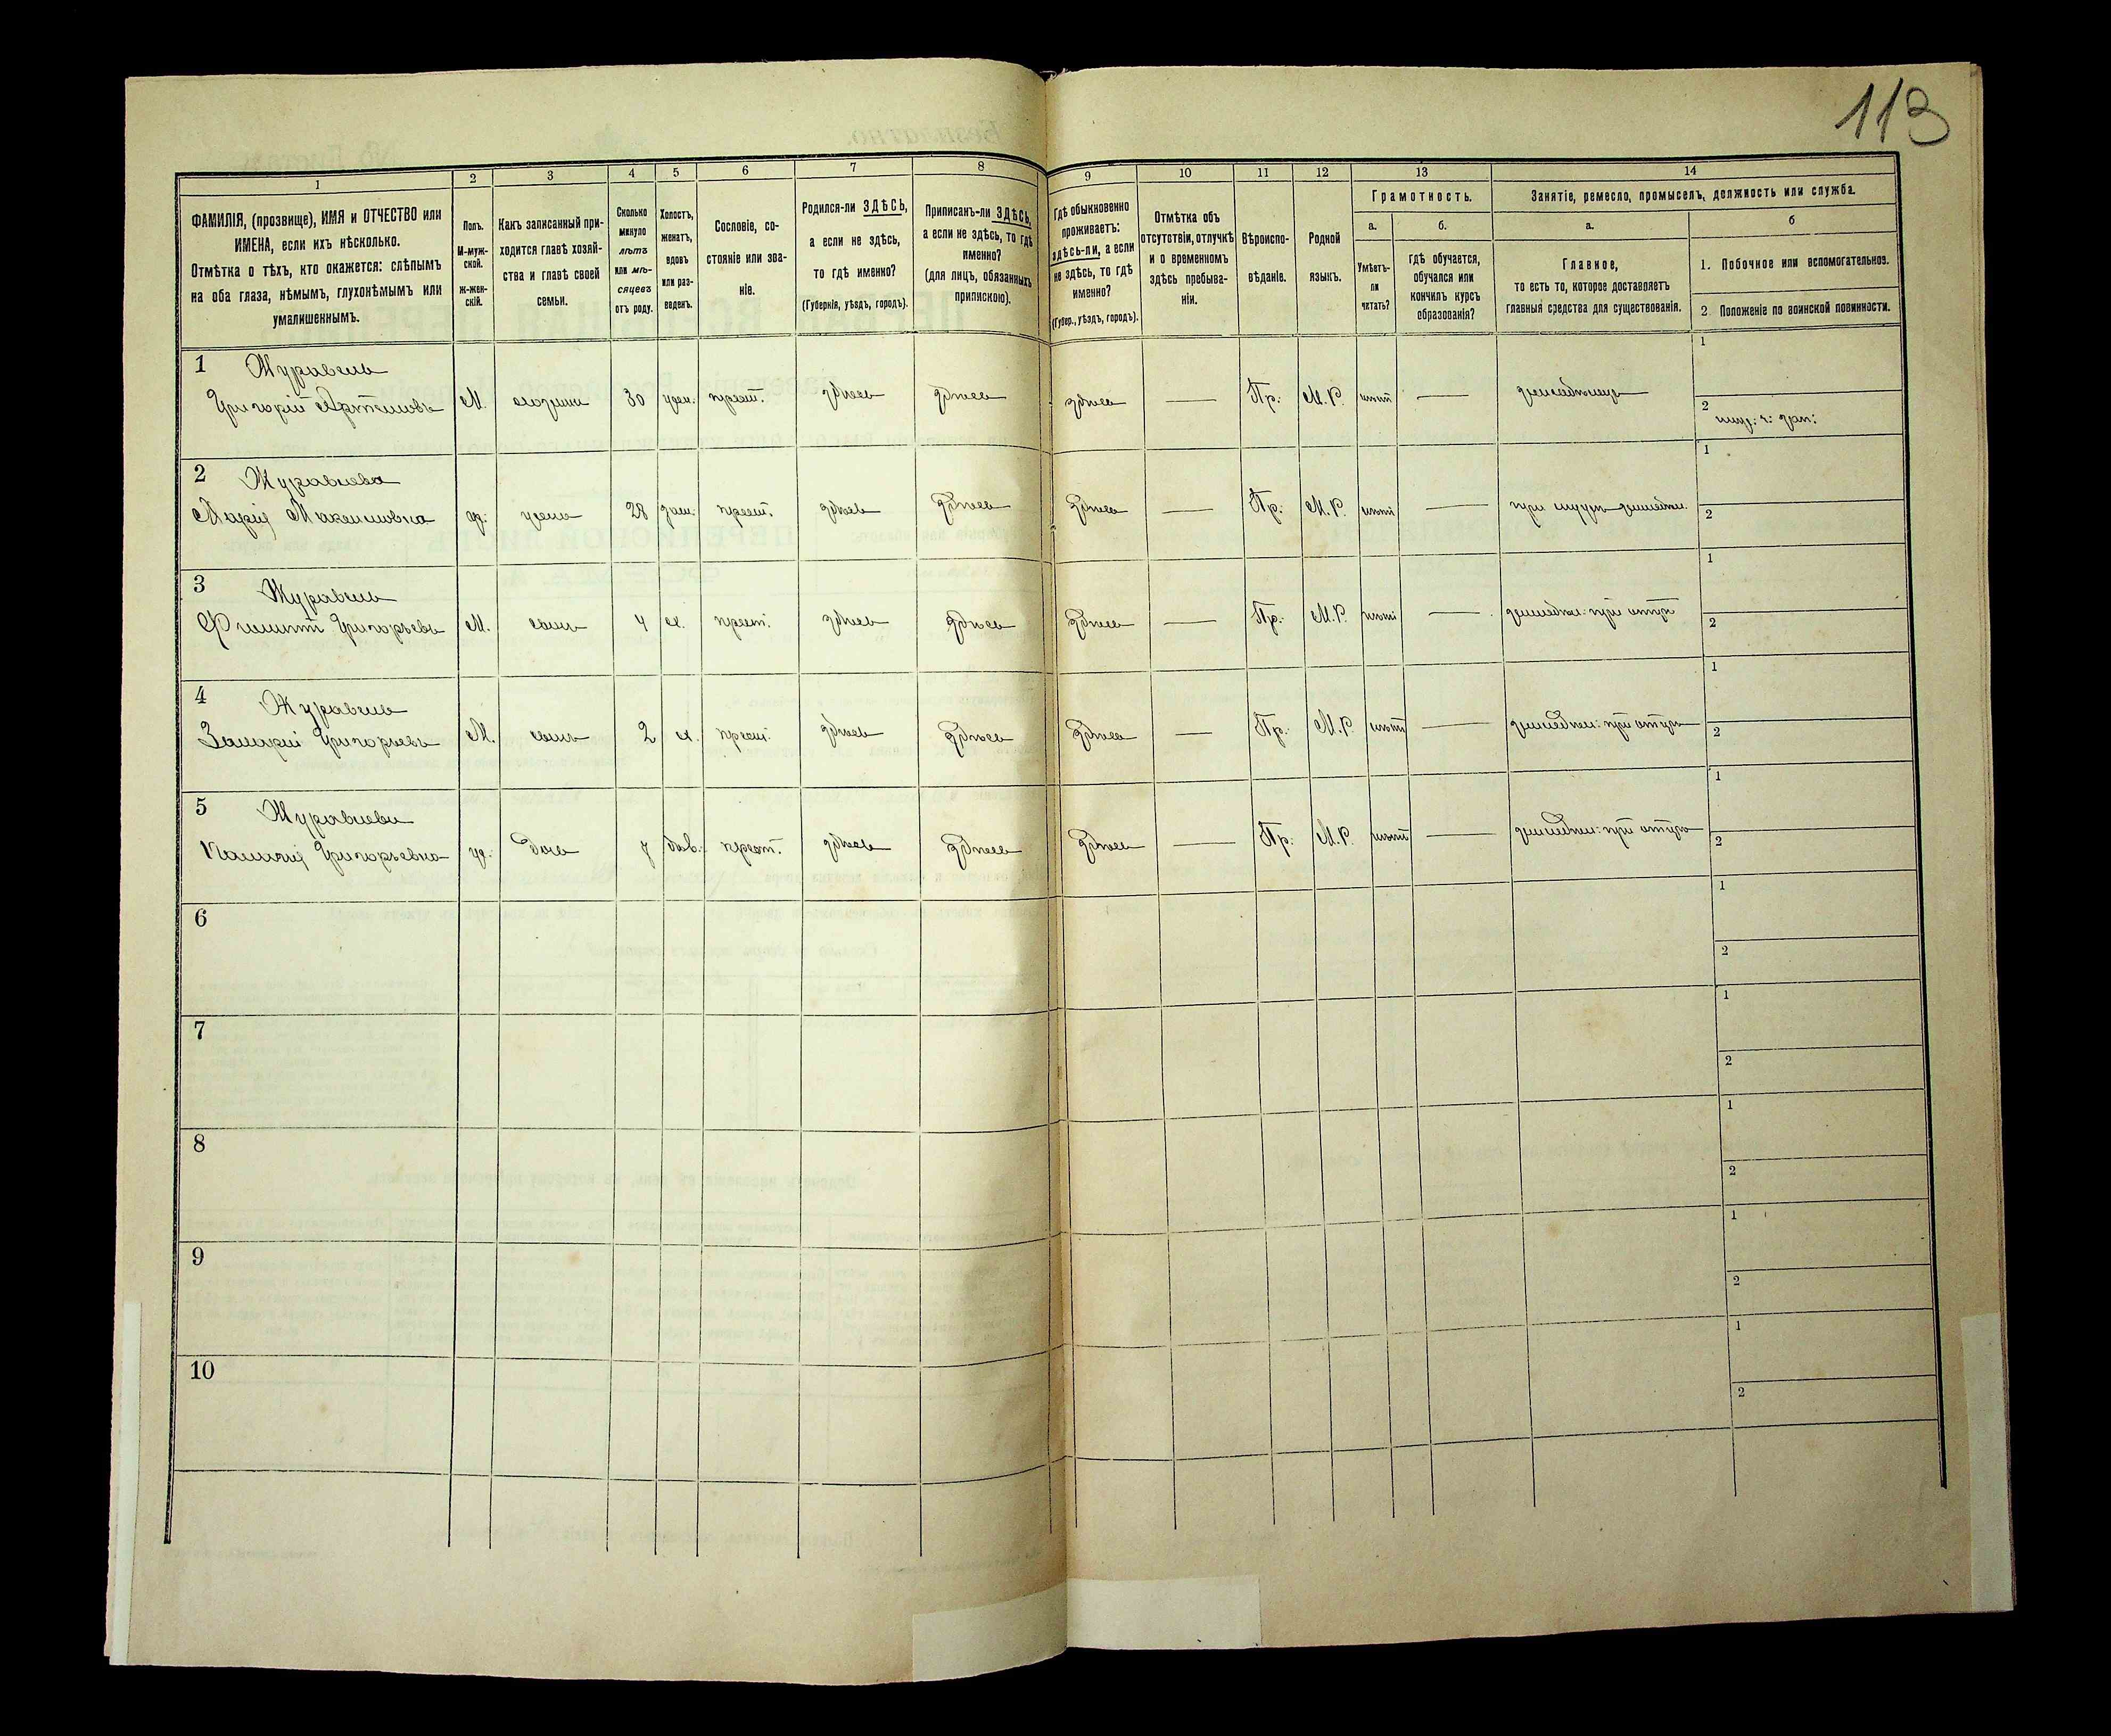 113
1
2
3
4
5
6
7
8
9
10
11
12
13
14
ФАМИЛІЯ, (прозвище), ИМЯ и ОТЧЕСТВО или
ИМЕНА, если ихъ нѣсколько.
Отмѣтка о тѣхъ, кто окажется: слѣпымъ
на оба глаза, нѣмымъ, глухонѣмымъ или
умалишеннымъ.
Полъ.
М-муж-
ской.
Ж-жен-
скій.
Какъ записанный при-
ходится главѣ хозяй-
ства и главѣ своей
семьи.
Сколько
минуло
лѣтъ
или мѣ-
сяцевъ
отъ роду.
Холостъ,
женатъ,
вдовъ
или раз-
веденъ.
Сословіе, со-
стояніе или зва-
ніе.
Родился-ли ЗДѢСЬ,
а если не здѣсь,
то гдѣ именно?
(Губернія, уѣздъ, городъ).
Приписанъ-ли ЗДѢСЬ,
а если не здѣсь, то гдѣ
именно?
(для лицъ, обязанныхъ
припискою).
Гдѣ обыкновенно
проживаетъ:
здѣсь-ли, а если
не здѣсь, то гдѣ
именно?
(Губер., уѣздъ, городъ).
Отмѣтка объ
отсутствіи, отлучкѣ
и о временномъ
здѣсь пребыва-
ніи.
Вѣроиспо-
вѣданіе.
Родной
языкъ.
Грамотность.
а.
Умѣетъ-
ли
читать?
б.
гдѣ обучается,
обучался или
кончилъ курсъ
образованія?
Занятіе, ремесло, промыселъ, должность или служба.
а.
Главное,
то есть то, которое доставляетъ
главныя средства для существованія.
б
1. Побочное или вспомогательное.
2 Положеніе по воинской повинности.
1 Журавель
Григорій Артемовъ М. хозяинъ 30 жен. крест. здѣсь здѣсь здѣсь — Пр. М.Р. нѣтъ — земледѣлецъ
1
2
2 Журавлева
Марія Максимовна ж. жена 28 зам. крест. здѣсь здѣсь здѣсь — Пр. М.Р. нѣтъ — при мужѣ земледѣл.
1
2
3 Журавель
Филиппъ Григорьевъ М. сынъ 4 х. крест. здѣсь здѣсь здѣсь — Пр. М.Р. нѣтъ — земледѣл: при отцѣ
1
2
4 Журавель
Григорьевъ М. сынъ 2 х. крест. здѣсь здѣсь здѣсь — Пр. М.Р. нѣтъ — земледѣл: при отцѣ
1
2
5 Журавлева
Григорьевна ж. дочь 7 дѣв. крест. здѣсь здѣсь здѣсь — Пр. М.Р. нѣтъ — земледѣл: при отцѣ
1
2
6
1
2
7
1
2
8
1
2
9
1
2
10
1
2